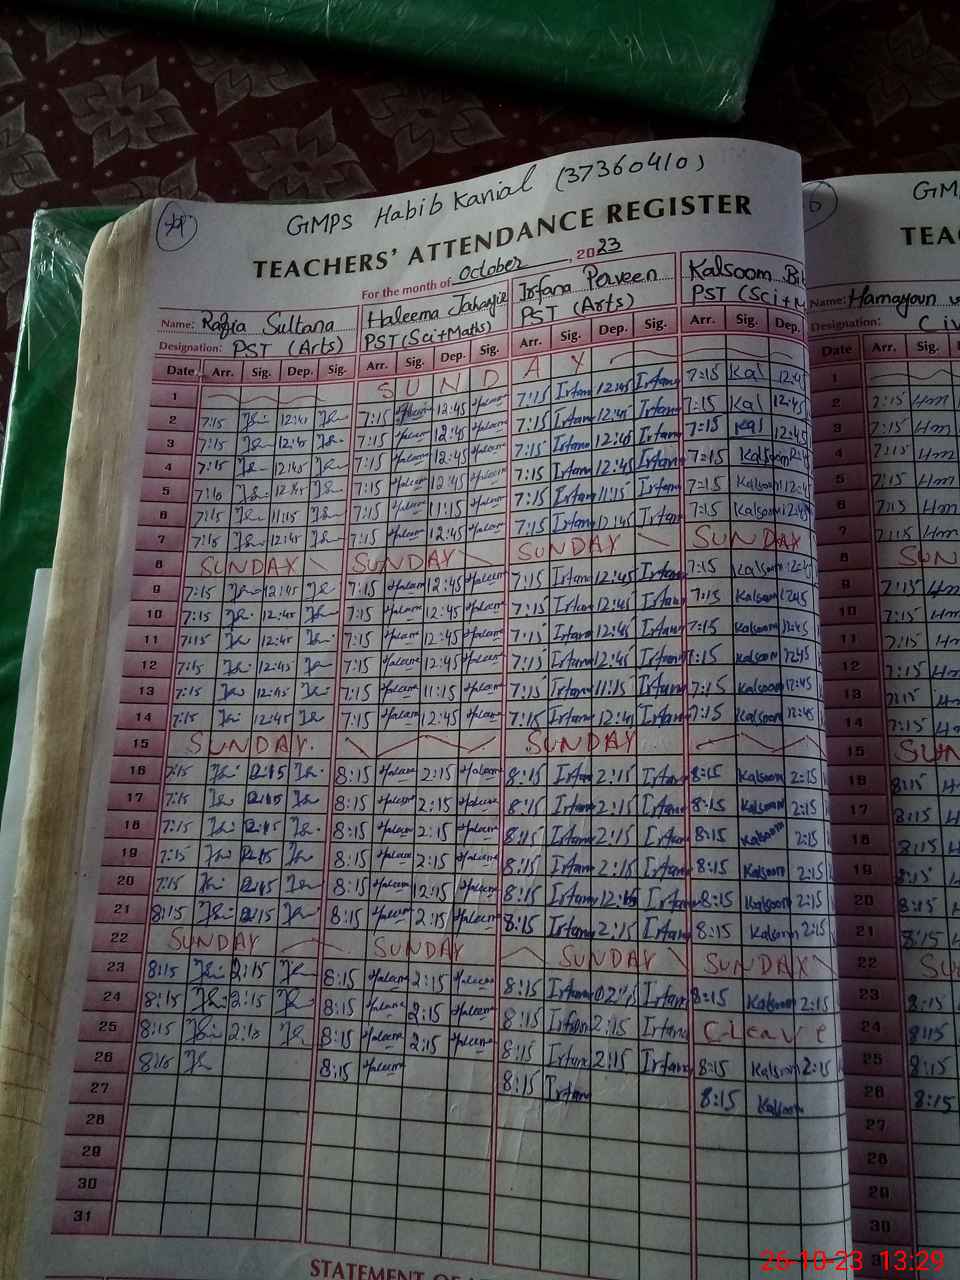 GMPS Habib Kanial (37360410)
TEACHERS' ATTENDANCE REGISTER
For the month of October, 2023
Name: Razia Sultana Haleema Jahangir Irfana Parveen Kalsoom Bi
Designation: PST (Arts) PST (Sci+Maths) PST (Arts) PST (Sci+M
Date Arr. Sig. Dep. Sig. Arr. Sig. Dep. Sig. Arr. Sig. Dep. Sig. Arr. Sig. Dep.
1 SUNDAY
2 7:15 12:45 7:15 12:45 7:15 Irfana 12:45 Irfana 7:15 Kal 12:45
3 7:15 12:45 7:15 Haleem 12:45 Haleem 7:15 Irfana 12:45 Irfana 7:15 Kal 12:45
4 7:15 12:45 7:15 Haleem 12:45 Haleem 7:15 Irfana 12:45 Irfana 7:15 Kal 12:45
5 7:15 12:45 7:15 Haleem 12:45 Haleem 7:15 Irfana 12:45 Irfana 7:15 Kalsoom 12:45
6 7:15 11:15 7:15 Haleem 11:15 Haleem 7:15 Irfana 11:15 Irfana 7:15 Kalsoom
7 7:15 12:45 7:15 Haleem 12:45 Haleem 7:15 Irfana 12:45 Irfana 7:15 Kalsoom 12:45
8 SUNDAY SUNDAY SUNDAY SUNDAY
9 7:15 12:45 7:15 Haleem 12:45 Haleem 7:15 Irfana 12:45 Irfana 7:15 Kalsoom
10 7:15 12:45 7:15 Haleem 12:45 Haleem 7:15 Irfana 12:45 Irfana 7:15 Kalsoom 12:45
11 7:15 12:45 7:15 Haleem 12:45 Haleem 7:15 Irfana 12:45 Irfana 7:15 Kalsoom 12:45
12 7:15 12:45 7:15 Haleem 12:45 Haleem 7:15 Irfana 12:45 Irfana 7:15 Kalsoom 12:45
13 7:15 12:45 7:15 Haleem 11:15 Haleem 7:15 Irfana 11:15 Irfana 7:15 Kalsoom 12:45
14 7:15 12:45 7:15 Haleem 12:45 Haleem 7:15 Irfana 12:45 Irfana 7:15 Kalsoom 12:45
15 SUNDAY. SUNDAY
16 7:15 8:15 Haleem 2:15 Haleem 8:15 Irfana 2:15 Irfana 8:15 Kalsoom 2:15
17 7:15 8:15 Haleem 2:15 Haleem 8:15 Irfana 2:15 Irfana 8:15 Kalsoom 2:15
18 7:15 8:15 Haleem 2:15 Haleem 8:15 Irfana 2:15 Irfana 8:15 Kalsoom 2:15
19 7:15 8:15 Haleem 2:15 Haleem 8:15 Irfana 2:15 Irfana 8:15 Kalsoom 2:15
20 7:15 8:15 Haleem 12:15 Haleem 8:15 Irfana 12:15 Irfana 8:15 Kalsoom 2:15
21 8:15 8:15 Haleem 2:15 Haleem 8:15 Irfana 2:15 Irfana 8:15 Kalsoom 2:15
22 SUNDAY SUNDAY SUNDAY SUNDAY
23 8:15 2:15 8:15 Haleem 2:15 Haleem 8:15 Irfana Irfana 8:15 Kalsoom 2:15
24 8:15 2:15 8:15 Haleem 2:15 Haleem 8:15 Irfana 2:15 Irfana C leave
25 8:15 2:15 8:15 Haleem 2:15 Haleem 8:15 Irfana 2:15 Irfana 8:15 Kalsoom 2:15
26 8:15 8:15 Haleem 8:15 Irfana 8:15 Kalsoom
27
28
29
30
31
STATEMENT OF
GM
TEA
Name: Hamayoun
Designation: Civ
Date Arr. Sig.
1
2 7:15 Hm
3 7:15 Hm
4 7:15 Hm
5 7:15 Hm
6 7:15 Hm
7 7:15 Hm
8 SUN
9 7:15 Hm
10 7:15 Hm
11 7:15 Hm
12 7:15 Hm
13 7:15 Hm
14 7:15 Hm
15 SUN
16 8:15
17 8:15
18 8:15
19 8:15
20 8:15
21 8:15
22 SU
23 8:15
24 8:15
25 8:15
26 8:15
27
28
29
30
26-10-23 13:29